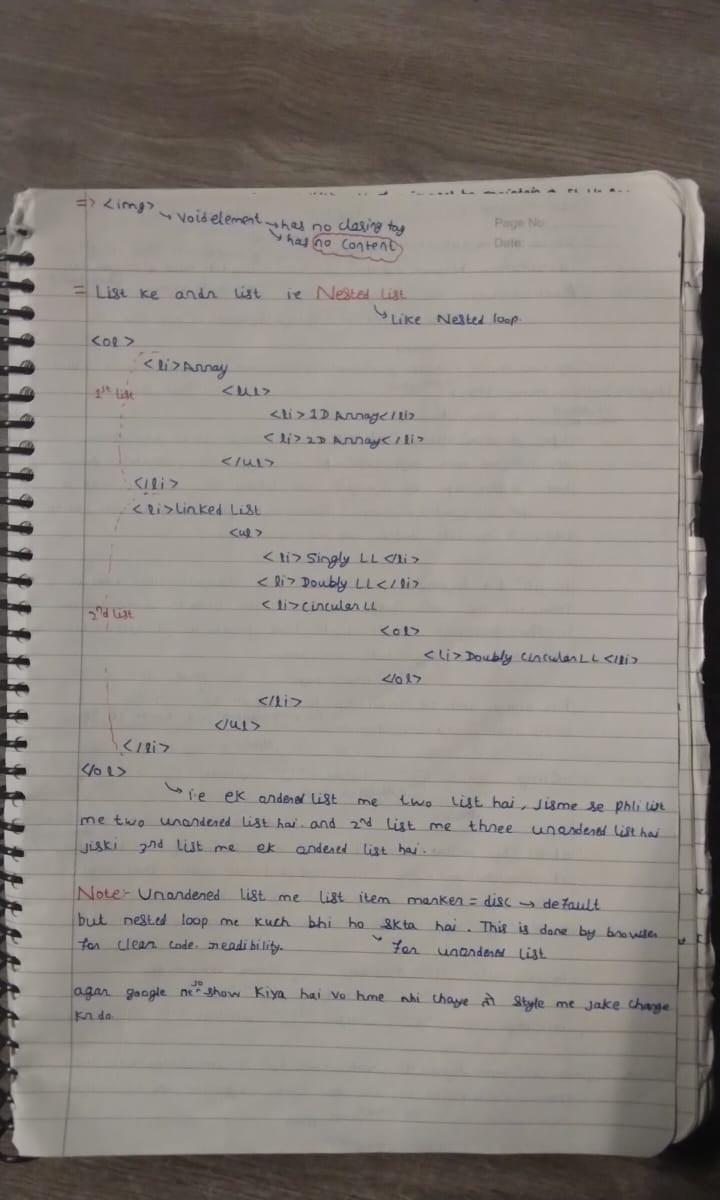 => <img>
↳ Void element → has no closing tag
↳ has no content
Page No.
Date:
= List ke andr list ie Nested list
↳ Like Nested loop.
<ol>
<li> Array
1st list
<ul>
<li> 1D Array</li>
<li> 2D Array</li>
</ul>
</li>
<li> Linked List
<ul>
<li> Singly LL </li>
<li> Doubly LL </li>
<li> Circular LL
2nd list
<ol>
<li> Doubly Circular LL </li>
</ol>
</li>
</ul>
</li>
</ol>
↳ i.e ek ordered list me two list hai, Jisme se phli list
me two unordered list hai. and 2nd list me three unordered list hai
jiski 3rd list me ek ordered list hai.
Note:- Unordered list me list item marker = disc → default
but nested loop me kuch bhi ho skta hai. This is done by browser
for clean code. readibility. ↳ for unordered list
agar google ne jo show kiya hai vo hme nhi chaye to style me jake change
kr do.